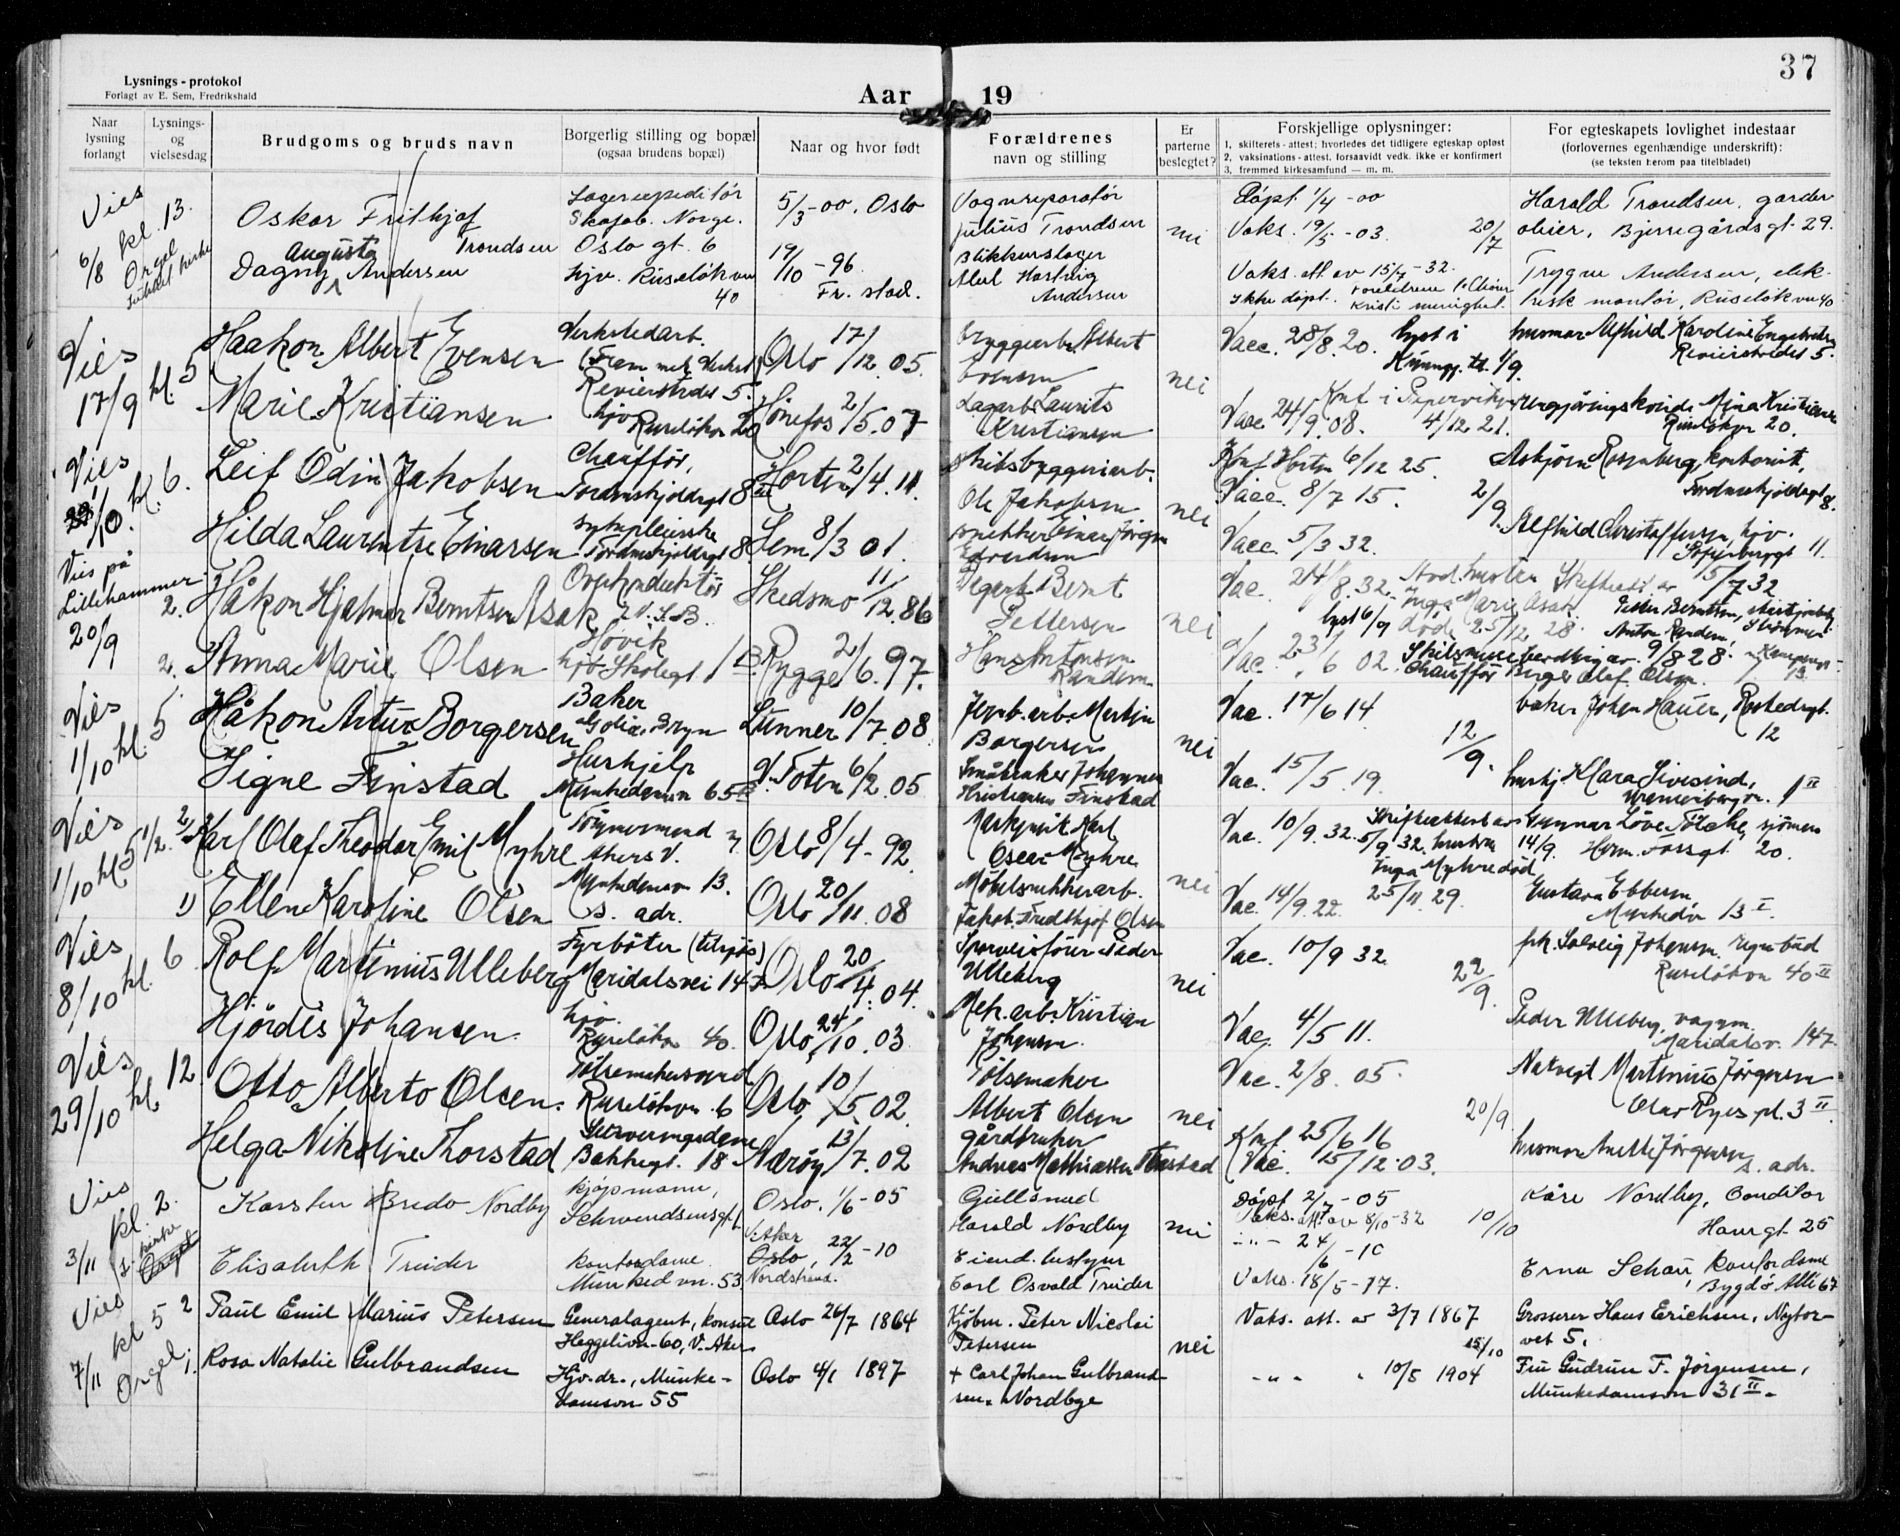 Lysnings - protokol
Forlagt av E. Sem, Fredrikshald
Aar 19
37
Naar lysning forlangt
Lysnings- og vielsesdag
Brudgoms og bruds navn
Borgerlig stilling og bopæl
(ogsaa brudens bopæl)
Naar og hvor født
Forældrenes
navn og stilling
Er parterne beslegtet?
Forskjellige oplysninger:
1. skifterets - attest; hvorledes det tidligere egteskap opløst
2. vaksinations - attest. forsaavidt vedk. ikke er konfirmert
3. fremmed kirkesamfund — m. m.
For egteskapets lovlighet indestaar
(forlovernes egenhændige underskrift):
(se teksten herom paa titelbladet)
Vies 6/8 kl. 13. Orgel
Oskar Frithjof Trondsen
Lagerexpeditør
Skofab. Norge.
Oslo gt. 6
5/3-00. Oslo
Vognreparatør
Julius Trondsen
nei
Døpt 1/4 -00
Vaks. 19/5 -03. 20/7
Harald Trondsen, garde-
obier, Bjerregårdsgt. 29.
Dagny Augusta Andersen
hjv. Ruseløkvn 40
19/10 -96. Fr. stad.
Blikkenslager
Abel Hartvig
Andersen
Vaks. att. av 15/7-32.
Ikke døpt. Foreldrene
Kristi menighet.
Trygve Andersen, elek-
trisk montør, Ruseløkvn 40
Vies 17/9 kl. 5.
Haakon Albert Evensen
Verkstedarb.
(Fram mek. Verkst.)
Revierstrds 5.
Oslo 17/12. 05.
Bryggearb. Albert
Evensen
nei
Vacc. 28/8. 20. lyst i
Kunngj. td. 1/9.
husmor Alfhild Karoline Engebretsen
Revierstrdet 5.
Marie Kristiansen
hjv
Ruseløkvn 20
Hønefos 2/5. 07
Lagarb. Laurits
Kristiansen
Vacc 24/9. 08. 4/12 21.
Konf i Pipervikens
Rengjøringskvinde Mina Kristiansen
Ruseløkvn 20.
Vies 1/10. kl. 6.
Leif Odin Jakobsen
Chauffør,
Tordenskjoldsgt 8 III
Horten 2/4. 11.
skibsbyggeriarb.
Ole Jakobsen
nei
Konf Horten 6/12 25.
Vacc. 8/7 15. 2/9.
Asbjørn Rosenberg, kontorist,
Tordenskjoldsgt 8.
Hilda Laurentse Einarsen
sykepleierske
Tordenskjoldsgt 8.
Sem 8/3 01.
snekker Einar Jørgen
Edvardsen
Vacc 5/3 32.
Alfhild Christoffersen, hjv.
Sofienberggt 11.
Vies på Lillehammer. 20/9 2.
Håkon Hjalmar Berntsen Asak
Overkonduktør
N.S.B.
Høvik
Skedsmo 11/12. 86
Bernt
Pettersen
nei
Vac. 24/8. 32. Skifteatt. av 15/7 32
Inga Marie Asak
lyst 6/9 død 25/12 28.
Petter Berntsen,
Strømmen
2.
Anna Marie Olsen
hjv Skolegt 1 B.
Rygge 2/6. 97.
Hans Antonsen
Randem
Vac. 23/6 02. Skilsmissebevilling av 9/8 28.
Anton Randem,
Chauffør Birger Olaf Olsen.
Vies 1/10 kl. 5.
Håkon Artur Borgersen
Baker
Bryn
Lunner 10/7. 08.
Jernb.arb. Martin
Borgersen
nei
Vac. 17/6 14
12/9.
baker Johan Hauer, Rostedsgt.
12
Signe Finstad
Hushjelp
Munkedamsvn 65 III
V. Toten 6/2. 05
Småbruker Johannes
Kristiansen Finstad
Vac. 15/5. 19.
hushj. Klara Sivesind,
1 II
Vies 1/10 kl 5 1/2. 2)
Karl Olaf Theodor Emil Myhre
Formermand
Akers V.
Oslo 8/4 - 92.
Maskinist Karl
Oscar Myhre
nei
Vac. 10/9. 32. Skifteattest av
5/9 32. hustru
Inga Myhre død
25/11 29.
Gunnar Løve Tørcke, sjømen
14/9. Herm. Fossgt 20.
1)
Ellen Karoline Olsen
Munkedamsv 13.
s. adr.
Oslo 20/11 08
Møbelsnekkerarb.
Jakob Fredthjof Olsen
Vac. 14/9. 22.
Gustava Ebbesen
Munkedv 13 I.
Vies 8/10 kl. 6
Rolf Martinius Ulleberg
Fyrbøter (tilsjøs)
Maridalsvei 147
Oslo 20/4. 04.
Sporveisfører Peder
Ulleberg
nei
Vac. 10/9 32.
22/9.
frk. Solveig Johansen.
Ruseløkvn 40 II
Hjördis Johansen.
hjv.
Ruseløkvn 40.
Oslo 24/10. 03
Mek. arb. Kristian
Johansen.
Vac. 4/5 11.
Peder Ulleberg, vognm.
Maridalsv. 147.
Vies 29/10 kl. 12.
Otto Alberto Olsen.
Pølsemakersvend
Ruseløkvn 6
Oslo 10/5. 02.
Pølsemaker
Albert Olsen
nei
Vac. 2/8. 05.
20/9
Natvegt Martinius Jørgensen
Olav Ryes pl. 3 II.
Helga Nikoline Thorstad
Serveringsdame
Bakkegt. 18
Nærøy 13/7. 02
gårdbruker
Andreas Mathiassen Thorstad
Konf 25/6 16
Vac. 15/12. 03.
husmor Anette Jørgensen
s. adr.
Vies 3/11 kl. 2. kirke
Karsten Bredo Nordby
kjøpmann,
Schwendsensgt.
Oslo. 1/6 -05
Gullsmed
Harald Nordby
nei
Døpt 2/7 -05
Vaks. att. av 8/10-32
10/10
Kåre Nordby, Conditor
Hansgt 25
Elisabeth Treider
kontordame
Munked vn. 53
V. Aker
Oslo, 22/2 -10
Nordstrand.
Eiend. bestyrer
Carl Osvald Treider
- " - 24/6 -10
Vaks. 18/5 -17.
Erna Schou, kontordame
Bygdø Alle 67
Vies 7/11 kl 5 Orgel 2
Paul Emil Marius Petersen
Generalagent, konsul
Heggelivn. 60, V. Aker
Oslo 26/7 1864
Kjøbm. Peter Nicolai
Petersen
nei
Vaks. att. av 3/7 1867
15/10
Grosserer Hans Erichsen, Nytor-
vet 5.
1.
Rosa Natalie Gulbrandsen
Hjv. dr., Munke-
damsvn 55
Oslo 4/1 1897
+ Carl Johan Gulbrand-
sen. Nordbye
- " - " 10/5 1904
Fru Gudrun F. Jørgensen,
Munkedamsvn 31 II.